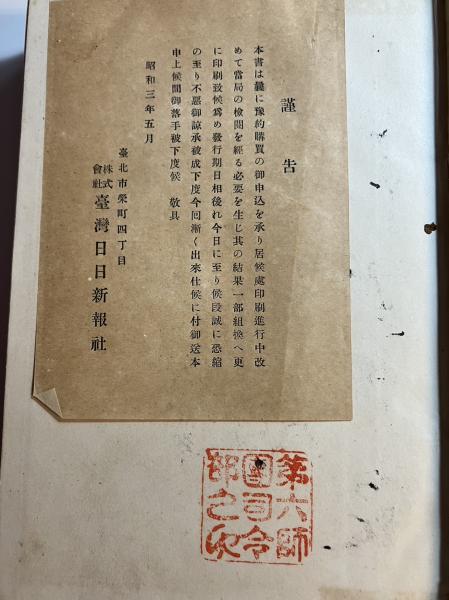 謹告
本書は曩に豫約購買の御申込を承り居候處印刷進行中改
めて當局の檢閲を經る必要を生じ其の結果一部組換へ更
に印刷致候爲め發行期日相後れ今日に至り候段誠に恐縮
の至り不惡御諒承被成下度今囘漸く出來仕候に付御送本
申上候間御落手被下度候 敬具
昭和三年五月
臺北市榮町四丁目
株式會社 臺灣日日新報社
第六師
團司令
部之印